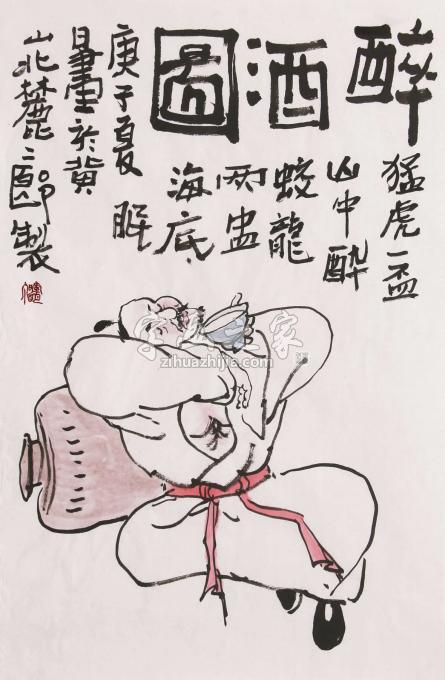 醉酒圖
猛虎一盃
山中醉
蛟龍
兩盅
海底
眠
庚子夏
日畫於黄
山北麓二郎製
字画之家
zihuazhijia.com